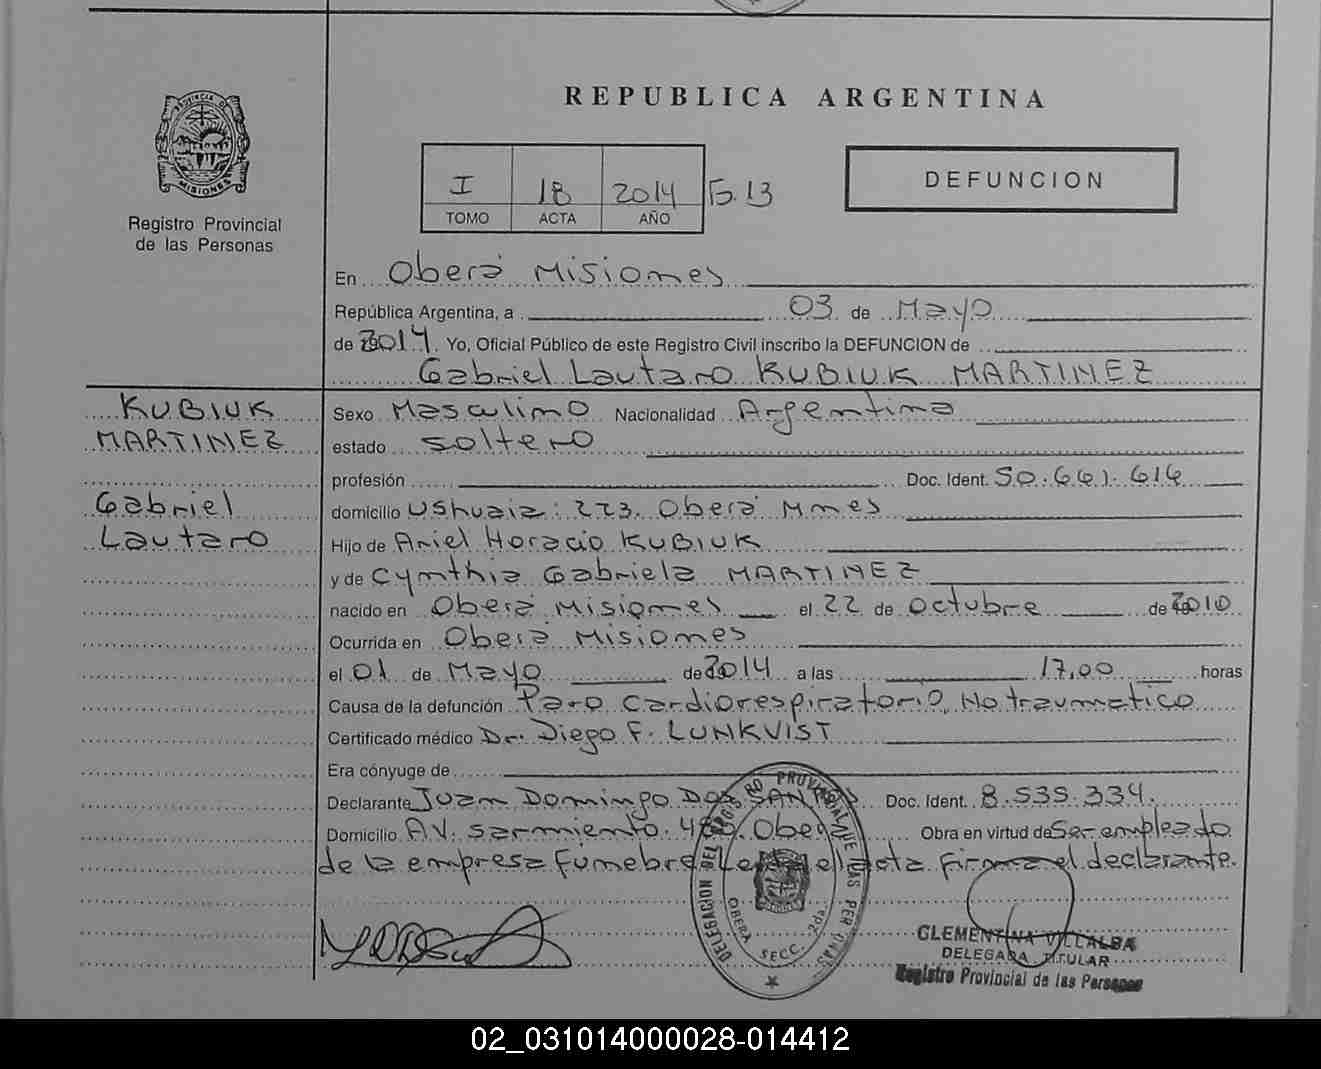 PROVINCIA DE
MISIONES
Registro Provincial
de las Personas
REPUBLICA ARGENTINA
I 18 2014 Fo. 13
TOMO ACTA AÑO
DEFUNCION
En Oberá Misiones
República Argentina, a 03 de Mayo
de 2014. Yo, Oficial Público de este Registro Civil inscribo la DEFUNCION de
Gabriel Lautaro KUBIUK MARTINEZ
KUBIUK
MARTINEZ
Gabriel
Lautaro
Sexo Masculino Nacionalidad Argentina
estado soltero
profesión Doc. Ident. 50.661.616
domicilio Ushuaia: 273. Oberá Mnes
Hijo de Ariel Horacio KUBIUK
y de Cynthia Gabriela MARTINEZ
nacido en Oberá Misiones el 22 de Octubre de 2010
Ocurrida en Oberá Misiones
el 01 de Mayo de 2014 a las 17,00 horas
Causa de la defunción Paro cardiorespiratorio, No traumatico
Certificado médico Dr. Diego F. LUNKVIST
Era cónyuge de
Declarante Juan Domingo DOS SANTOS Doc. Ident. 8.535.334.
Domicilio AV. sarmiento. Oberá Obra en virtud de Ser empleado
de la empresa Fúnebre. Leída el acta firma el declarante.
OBERA SECC. 2da.
CLEMENTINA VILLALBA
DELEGADA TITULAR
Registro Provincial de las Personas
02_031014000028-014412